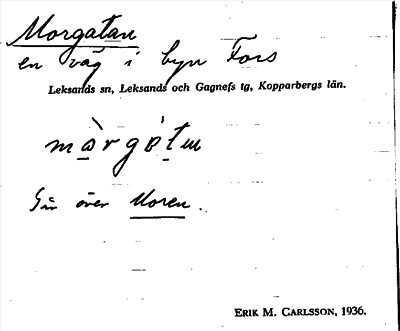 Morgatan
en väg i byn Fors
Leksands sn, Leksands och Gagnefs tg, Kopparbergs län.
Går över Moren.
ERIK M. CARLSSON, 1936.